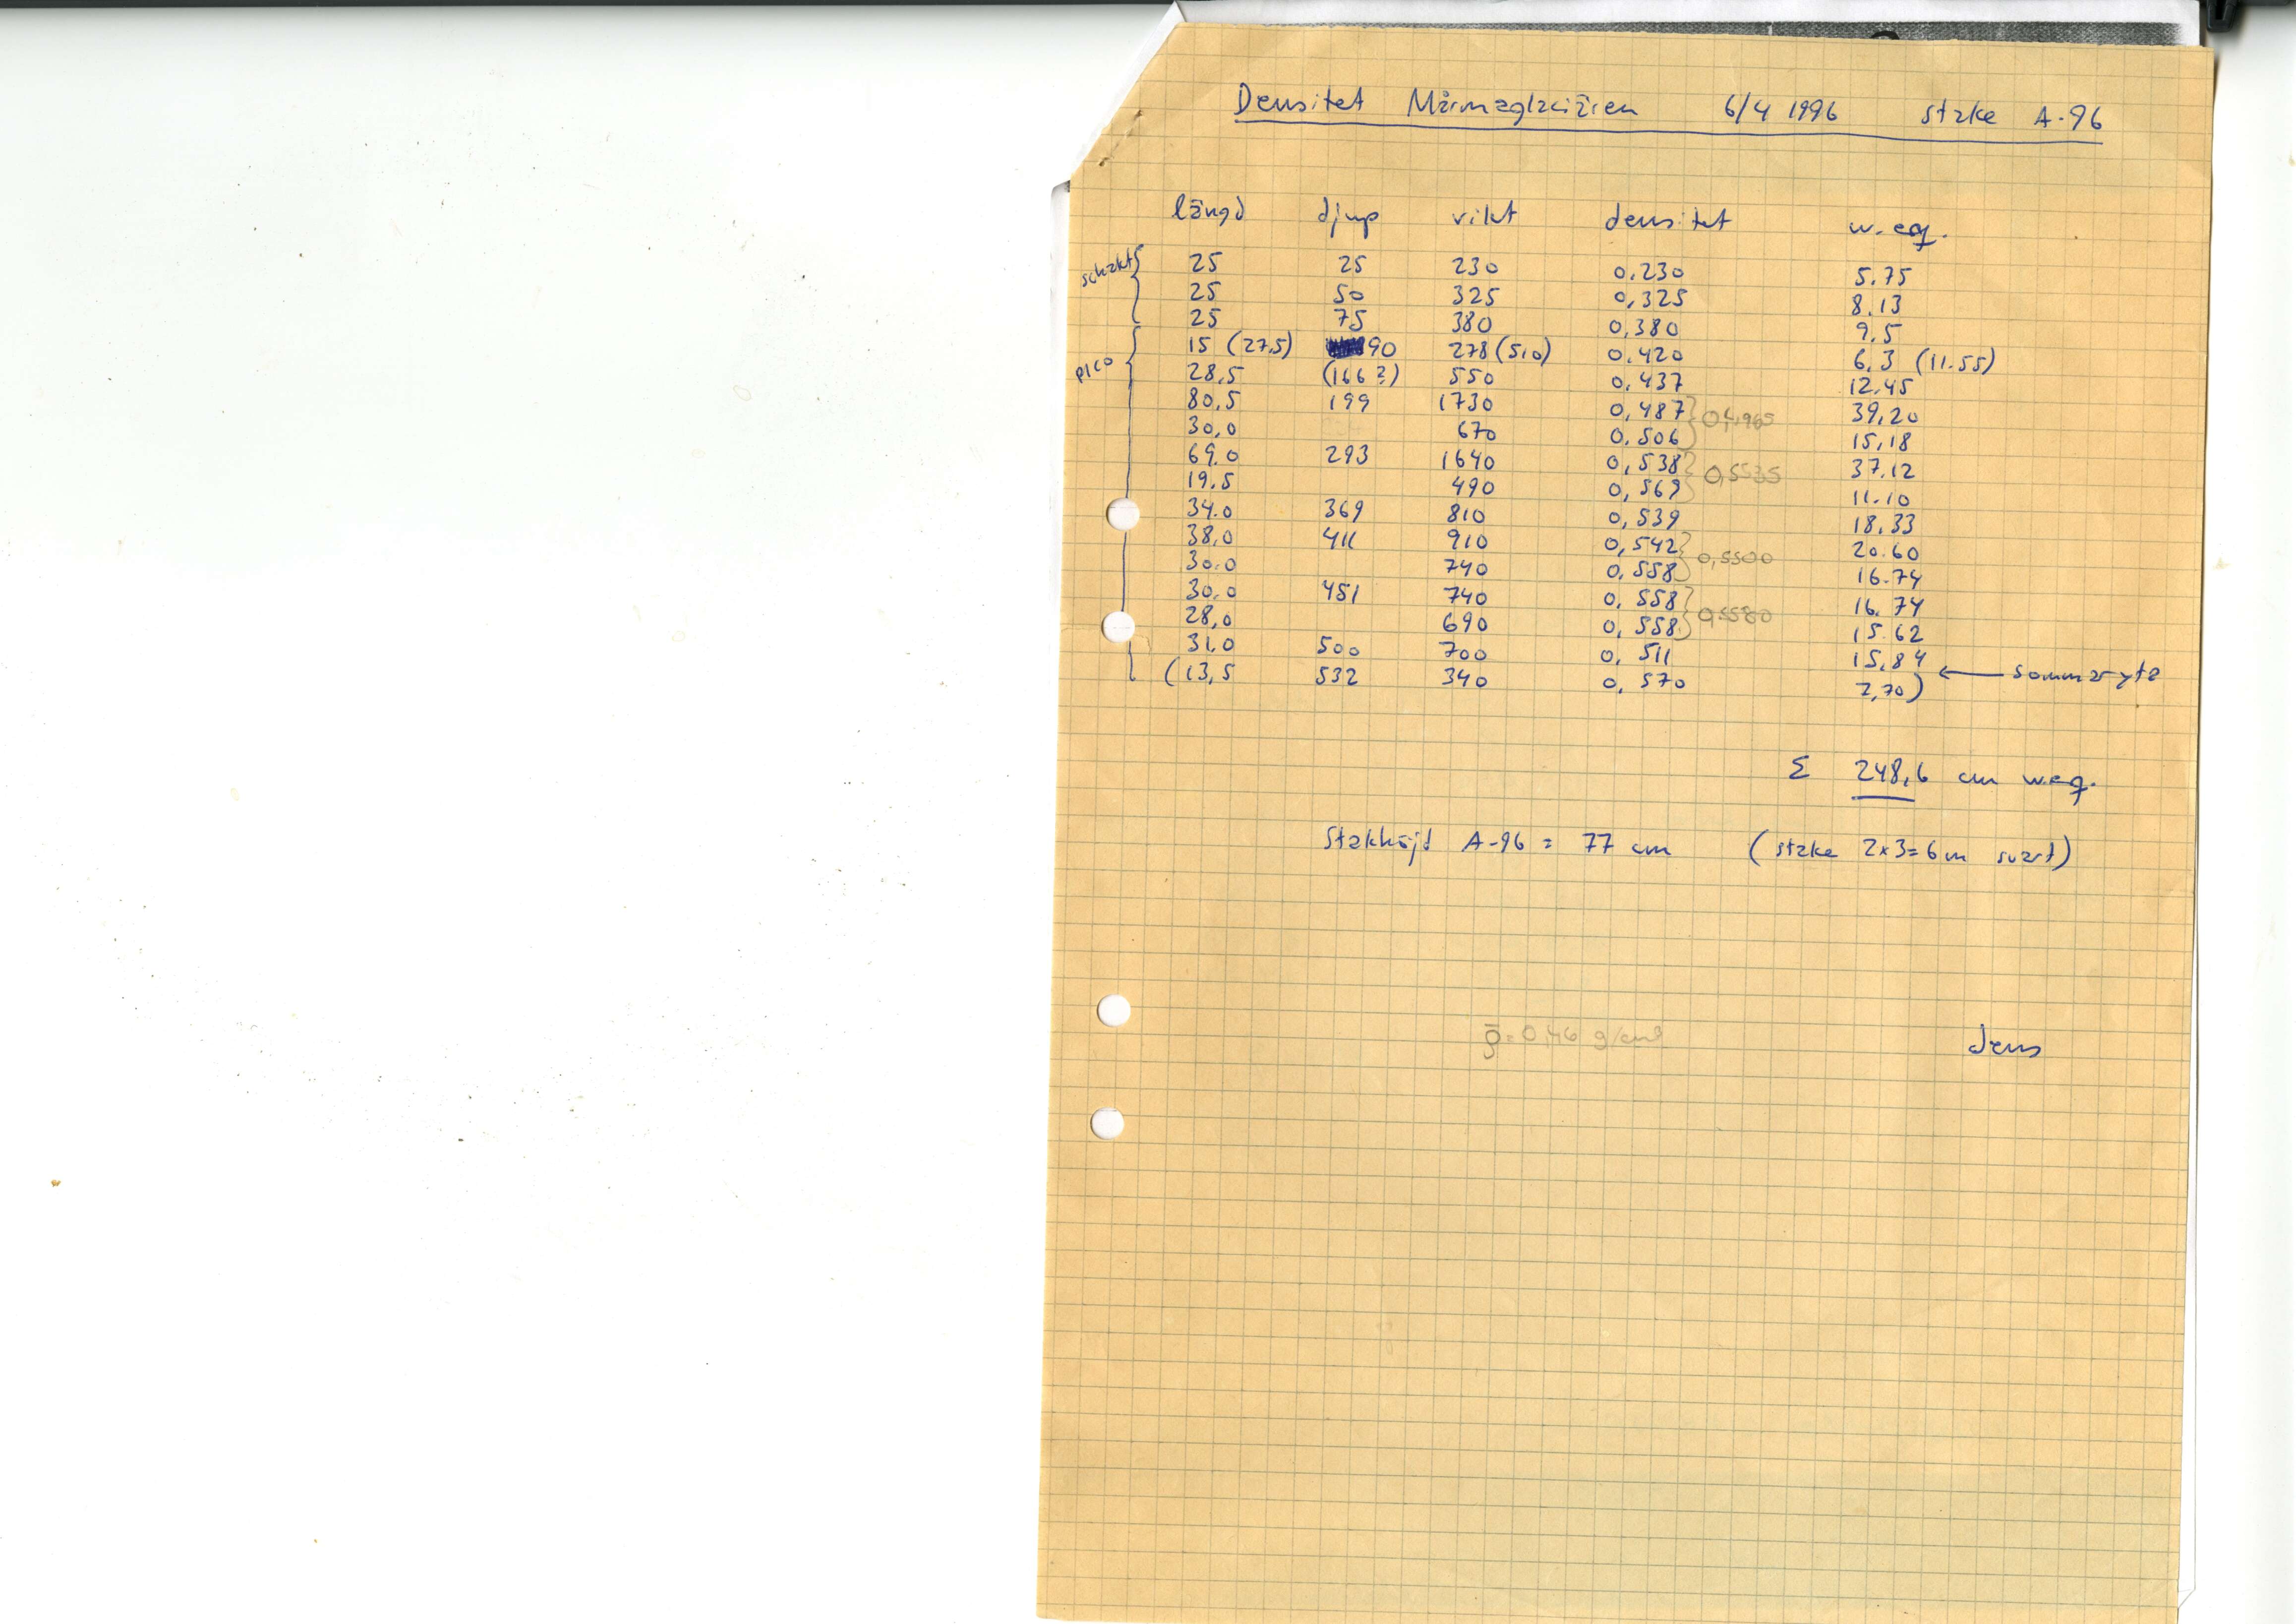 Densitet Mårmaglaciären 6/4 1996 stake A-96
längd djup vikt densitet w.eq.
schakt 25 25 230 0.230 5.75
25 50 325 0,325 8.13
25 75 380 0,380 9.5
pico 15 (27,5) 90 278 (510) 0.420 6.3 (11.55)
28,5 (166?) 550 0,437 12.45
80,5 199 1730 0,487 0,4965 39,20
30,0 670 0.506 15,18
69.0 293 1640 0,538 0,5535 37.12
19.5 490 0,569 11.10
34.0 369 810 0,539 18.33
38,0 411 910 0,542 0,5500 20.60
30.0 740 0.558 16.74
30,0 451 740 0.558 0,5580 16.74
28,0 690 0,558 15.62
31.0 500 700 0.511 15,84
(13,5 532 340 0.570 7,70) ← sommaryta
Σ 248,6 cm w.eq.
Stakhöjd A-96 = 77 cm (stake 2x3=6m svart)
ρ̄=0,46 g/cm³ dens